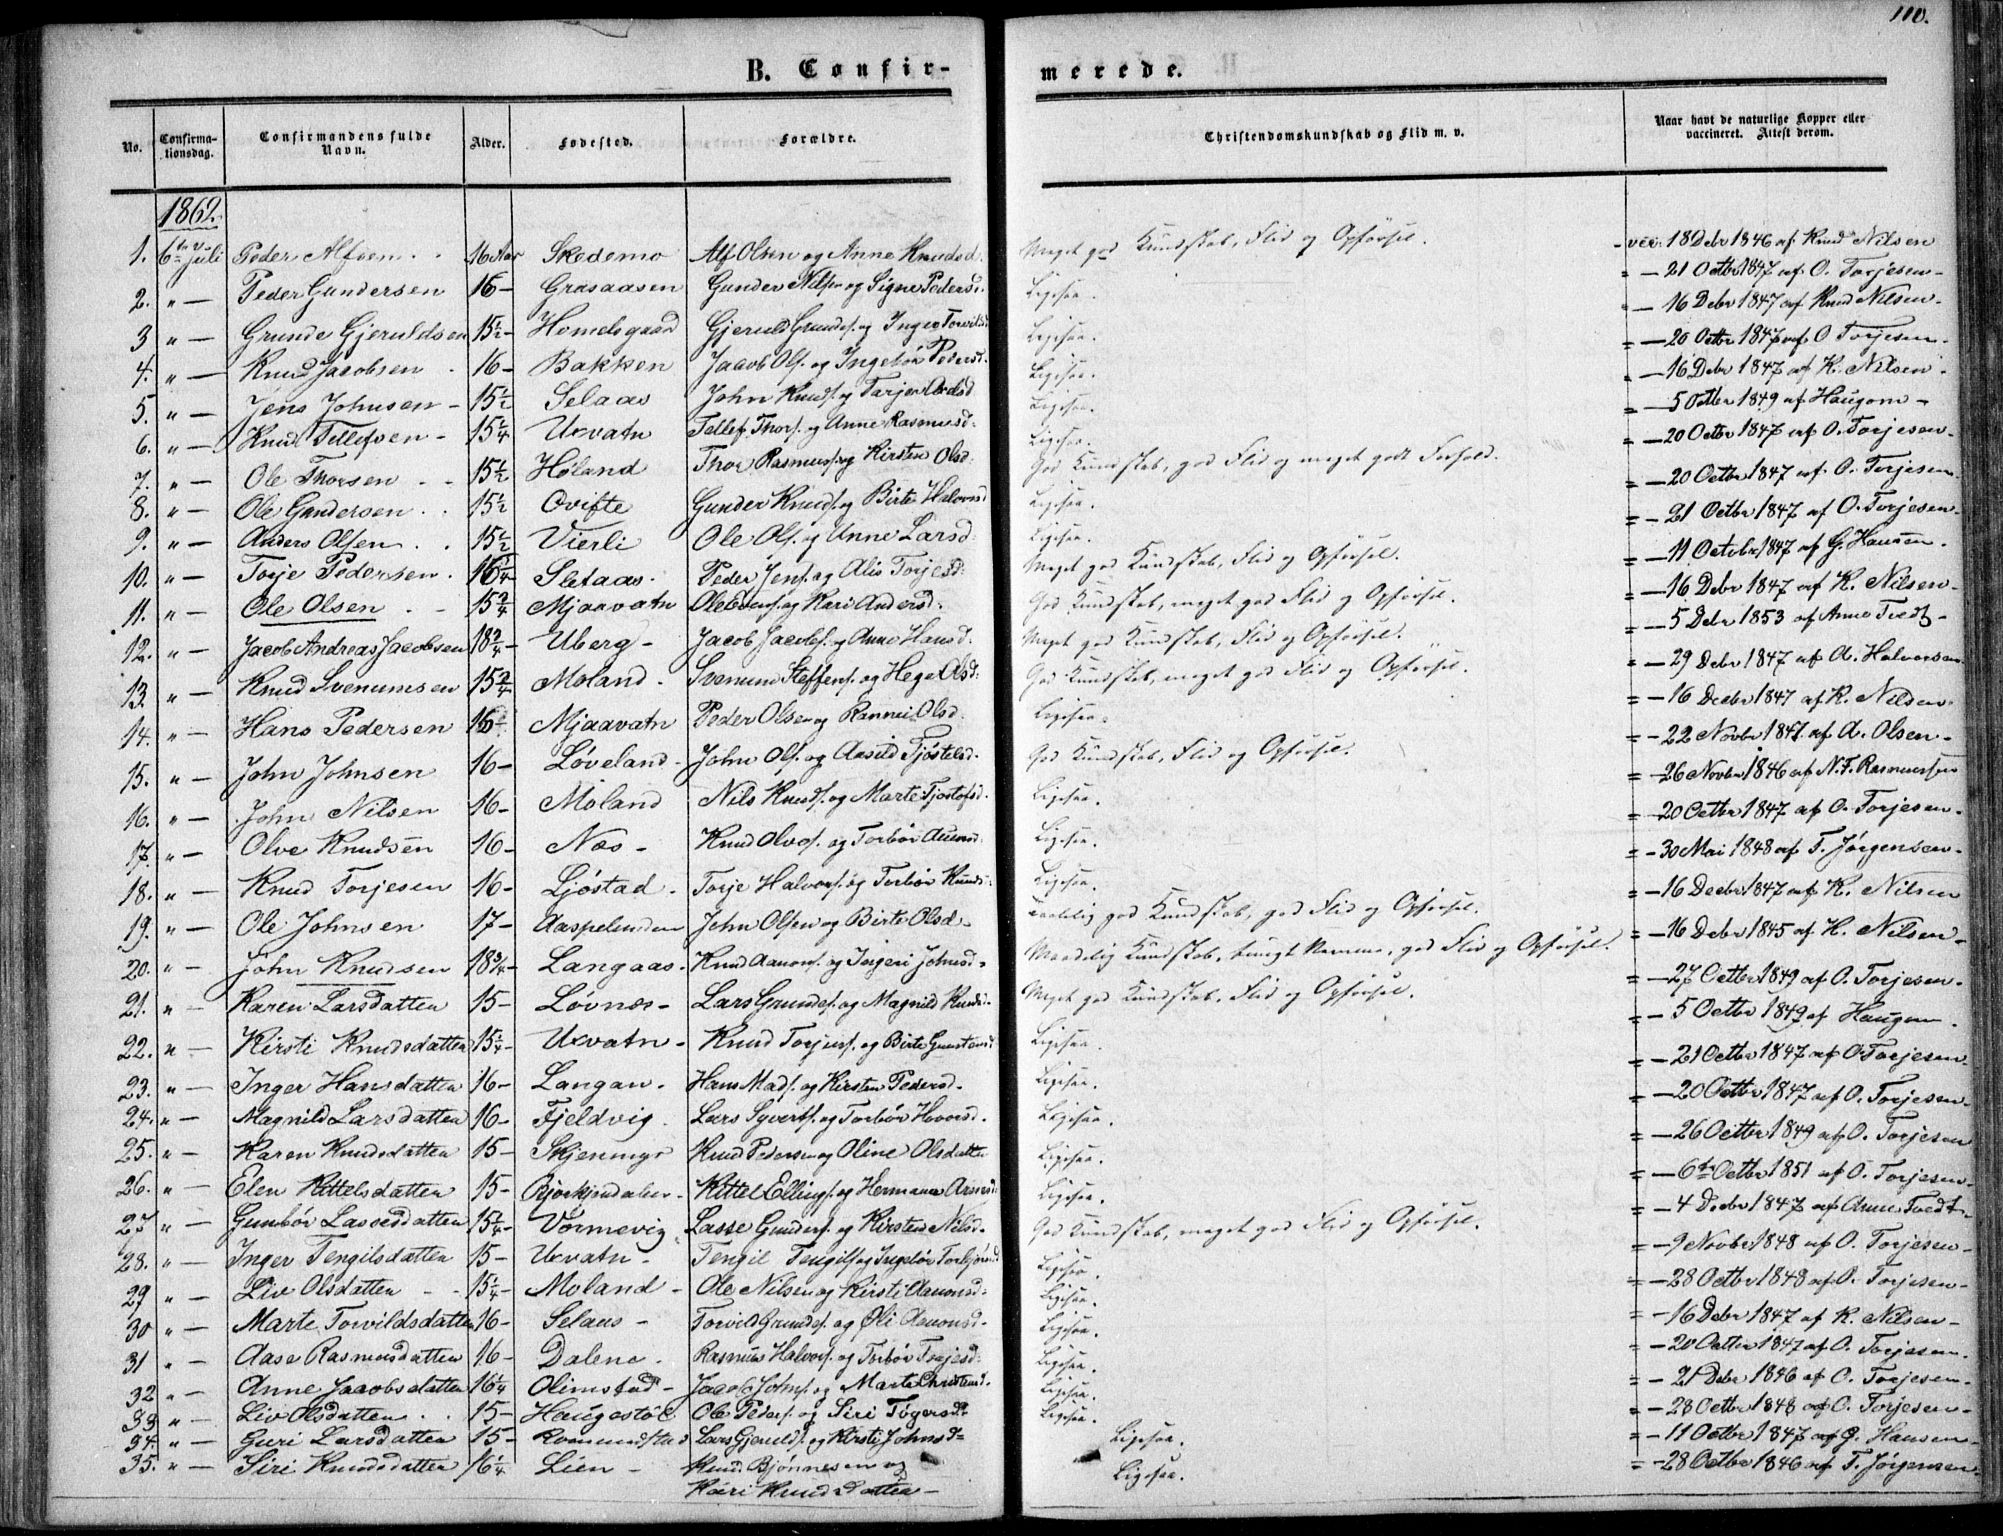 110.
B. Confir-
merede.
No.
Confirma-
tionsdag.
Confirmandens fulde
Navn.
Alder.
Fødested.
Forældre.
Christendomskundskab og Flid m. v.
Naar havt de naturlige Kopper eller
vaccineret. Attest derom.
1862.
1. 6te Juli Peder Alfsen 16 Aar Skedemo Alf Olsen og Anne Knudsd. Meget god Kundskab, Flid og Opførsel. vcc. 18 Debr 1846 af Knud Nilsen
2. " — Peder Gundersen 16 — Grasaasen Gunder Nils. og Signe Pedersd. Ligesaa. = — 21 Octbr 1847 af O. Torjesen —
3 " — Grunde Gjeruldsen 15½ — Homdsgaard Gjeruld Grundes. og Inger Torvildsd Ligesaa. = — 16 Debr 1847 af Knud Nilsen.
4. " — Knud Jacobsen 16 — Bakken Jacob Ols. og Ingebør Pedersd. Ligesaa. = — 20 Octbr 1847 af O Torjesen.
5. " — Jens Johnsen — 15½ Selaas John Knuds. og Tarjer Axelsd Ligesaa. = — 16 Debr 1847 af K. Nilsen
6. " — Knud Tellefsen — 15¼ Uxvatn Tellef Thors. og Anne Rasmusd. Ligesaa. = — 5 Octbr 1849 af Haugom —
7. " — Ole Thorsen 15½ Høland Thor Rasmus. og Kirsten Olsd. God Kundskab, god Flid og meget godt Forhold. = — 20 Octbr 1847 af O. Torjesen.
8. " — Ole Gundersen 15½ Qvifte Gunder Knuds. og Birte Halvorsd Ligesaa. = — 20 Octbr 1847 af O. Torjesen
9. " — Anders Olsen 15½ Vierli Ole Ols. og Anne Larsd. Ligesaa. = — 21 Octbr 1847 af O. Torjesen —
10. " — Torje Pedersen 16¼ Sletaas Peder Jens. og Alis Torjesd: Meget god Kundskab, Flid og Opførsel. = — 11 Octobr 1847 af G. Hansen.
11. " — Ole Olsen 15¾ Mjaavatn Ole Evens. og Kari Andersd. God Kundskab, meget god Flid og Opførsel. = — 16 Debr 1847 af K. Nilsen —
12. " — Jacob Andreas Jacobsen 18¾ — Uberg — Jacob Jacobs. og Anne Hansd. Meget god Kundskab, Flid og Opførsel. = — 5 Debr 1853 af Anne Tvedt —
13. " — Knud Svenumsen 15¾ Moland Svenum Steffens. og Hege Olsd: God Kundskab, meget god Flid og Opførsel. = — 29 Debr 1847 af A. Halvorsen
14. " — Hans Pedersen 16 Mjaavatn Peder Olsen og Rannei Olsd. Ligesaa. = — 16 Decbr 1847 af K. Nilsen
15. " — John Johnsen 16 — Løveland — John Ols. og Aasild Tjøstelsd. God Kundskab, Flid og Opførsel. = — 22 Novbr 1847 af A. Olsen —
16. " — John Nilsen 16 — Moland Nils Knuds. og Marte Tjostofsd. Ligesaa. = — 26 Novbr 1846 af N.F. Rasmussen
17. " — Olve Knudsen 16 — Næs — Knud Olves. og Torbør Aanonsd. Ligesaa. = — 20 Octbr 1847 af O. Torjesen —
18. " — Knud Torjesen 16 — Ljøstad Torje Halvors. og Torbør Knuds: Ligesaa. = — 30 Mai 1848 af T. Jørgensen —
19. " — Ole Johnsen 17 — Aaspelunden John Olsen og Birte Olsd — god Kundskab, god Flid og Opførsel. = — 16 Decbr 1847 af K. Nilsen
20. " — John Knudsen 18¾ — Langaas — Knud Aanons. og Ingeri Johnsd — Maadelig Kundskab, tungt Nemme, god Flid og Opførsel. = — 16 Debr 1845 af H. Nilsen —
21. " — Karen Larsdatten 15 — Løvnæs — Lars Grundes. og Magnild Knuds. Meget god Kundskab, Flid og Opførsel. = — 27 Octbr 1849 af O. Torjesen —
22. " — Kirsti Knudsdatten 15¼ — Uxvatn — Knud Torjus. og Birte Gunstensd Ligesaa. = — 5 Octbr 1849 af Haugom.
23. " — Inger Hansdatten 16 — Langan — Hans Mads. og Kirsten Pedersd — Ligesaa. = — 21 Octbr 1847 af O Torjesen.
24. " — Magnild Larsdatten 16 — Fjeldvig Lars Syverts. og Torbør Hvorsd. Ligesaa. = — 20 Octbr 1847 af O. Torjesen —
25. " — Karen Knudsdatten 15 — Skjenings Knud Pedersen og Oline Olsdatter Ligesaa. = — 26 Octbr 1849 af O. Torjesen
26. " — Elen Kittelsdatten 15 — Bjørkjendalen — Kittel Ellings. og Hermana Arnesd: Ligesaa. = — 6te Octbr 1851 af O. Torjesen —
27 " — Gunbør Lassesdatten 15¼ — Vormevig Lasse Gunders. og Kirsten Nilsd. God Kundskab, meget god Flid og Opførsel. = — 4 Decbr 1847 af Anne Tvedt —
28. " — Inger Tengilsdatten 15 — Uxvatn — Tengil Tengils. og Ingebør Torbjørnsd Ligesaa. = — 9 Novbr 1848 af O. Torjesen —
29 " — Liv Olsdatten — 15¼ — Moland — Ole Nilsen og Kirsti Aanonsd. Ligesaa. = — 28 Octbr 1848 af O. Torjesen —
30 " — Marte Torvildsdatten 16 — Selaas — Torvild Grundes. og Øli Aanonsd. Ligesaa. = — 16 Debr 1847 af K. Nilsen —
31 " — Aase Rasmusdatten 16 — Dalene Rasmus Halvors. og Torbør Torjesd. Ligesaa. = — 20 Octbr 1847 af O. Torjesen.
32 " — Anne Jacobsdatten 16¼ Olimstad — Jacob Johns. og Marte Christensd. Ligesaa. = — 21 Debr 1846 af O. Torjesen —
33 " — Liv Olsdatten 15 — Haugestøl Ole Peders. og Siri Tøgersd. Ligesaa. = — 28 Octbr 1848 af O. Torjesen —
34. " — Guri Larsdatten 15 — Rommundstad Lars Gjerulds. og Kirsti Johnsd = Ligesaa. = — 11 Octbr 1847 af G. Hansen —
35. " — Siri Knudsdatten 16¼ Lien — Knud Bjønnesen og Ligesaa. = — 28 Octbr 1846 af T. Jørgensen —
Kari Knudsdatten —